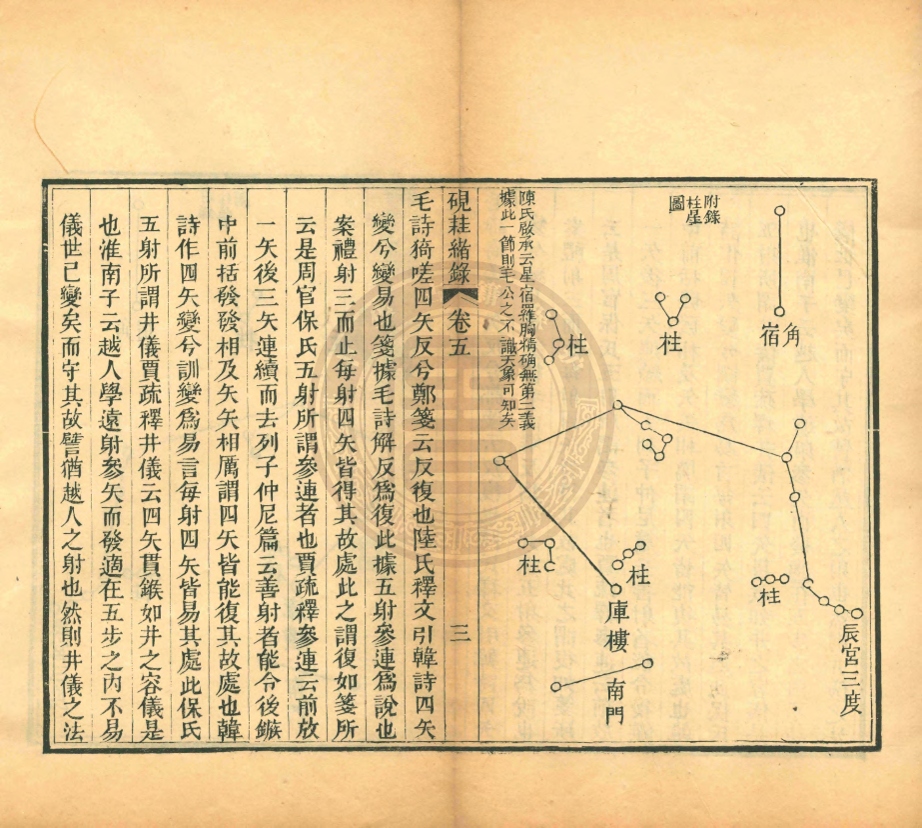 附錄
柱星
圖
角
宿
柱
柱
柱
柱
柱
庫樓
南門
辰宮三度
陳氏啟承云星宿羅胸精确無第二義
據此一節則毛公之不識天象可知矣
硯莊緒錄 卷五 三
毛詩猗嗟四矢反兮鄭箋云反復也陸氏釋文引韓詩四矢
變兮變易也箋據毛詩解反爲復此據五射參連爲說也
案禮射三而止每射四矢皆得其故處此之謂復如箋所
云是周官保氏五射所謂參連者也賈疏釋參連云前放
一矢後三矢連續而去列子仲尼篇云善射者能令後鏃
中前括發發相及矢矢相屬謂四矢皆能復其故處也韓
詩作四矢變兮訓變爲易言每射四矢皆易其處此保氏
五射所謂井儀賈疏釋井儀云四矢貫鍭如井之容儀是
也淮南子云越人學遠射參矢而發適在五步之內不易
儀世已變矣而守其故譬猶越人之射也然則井儀之法